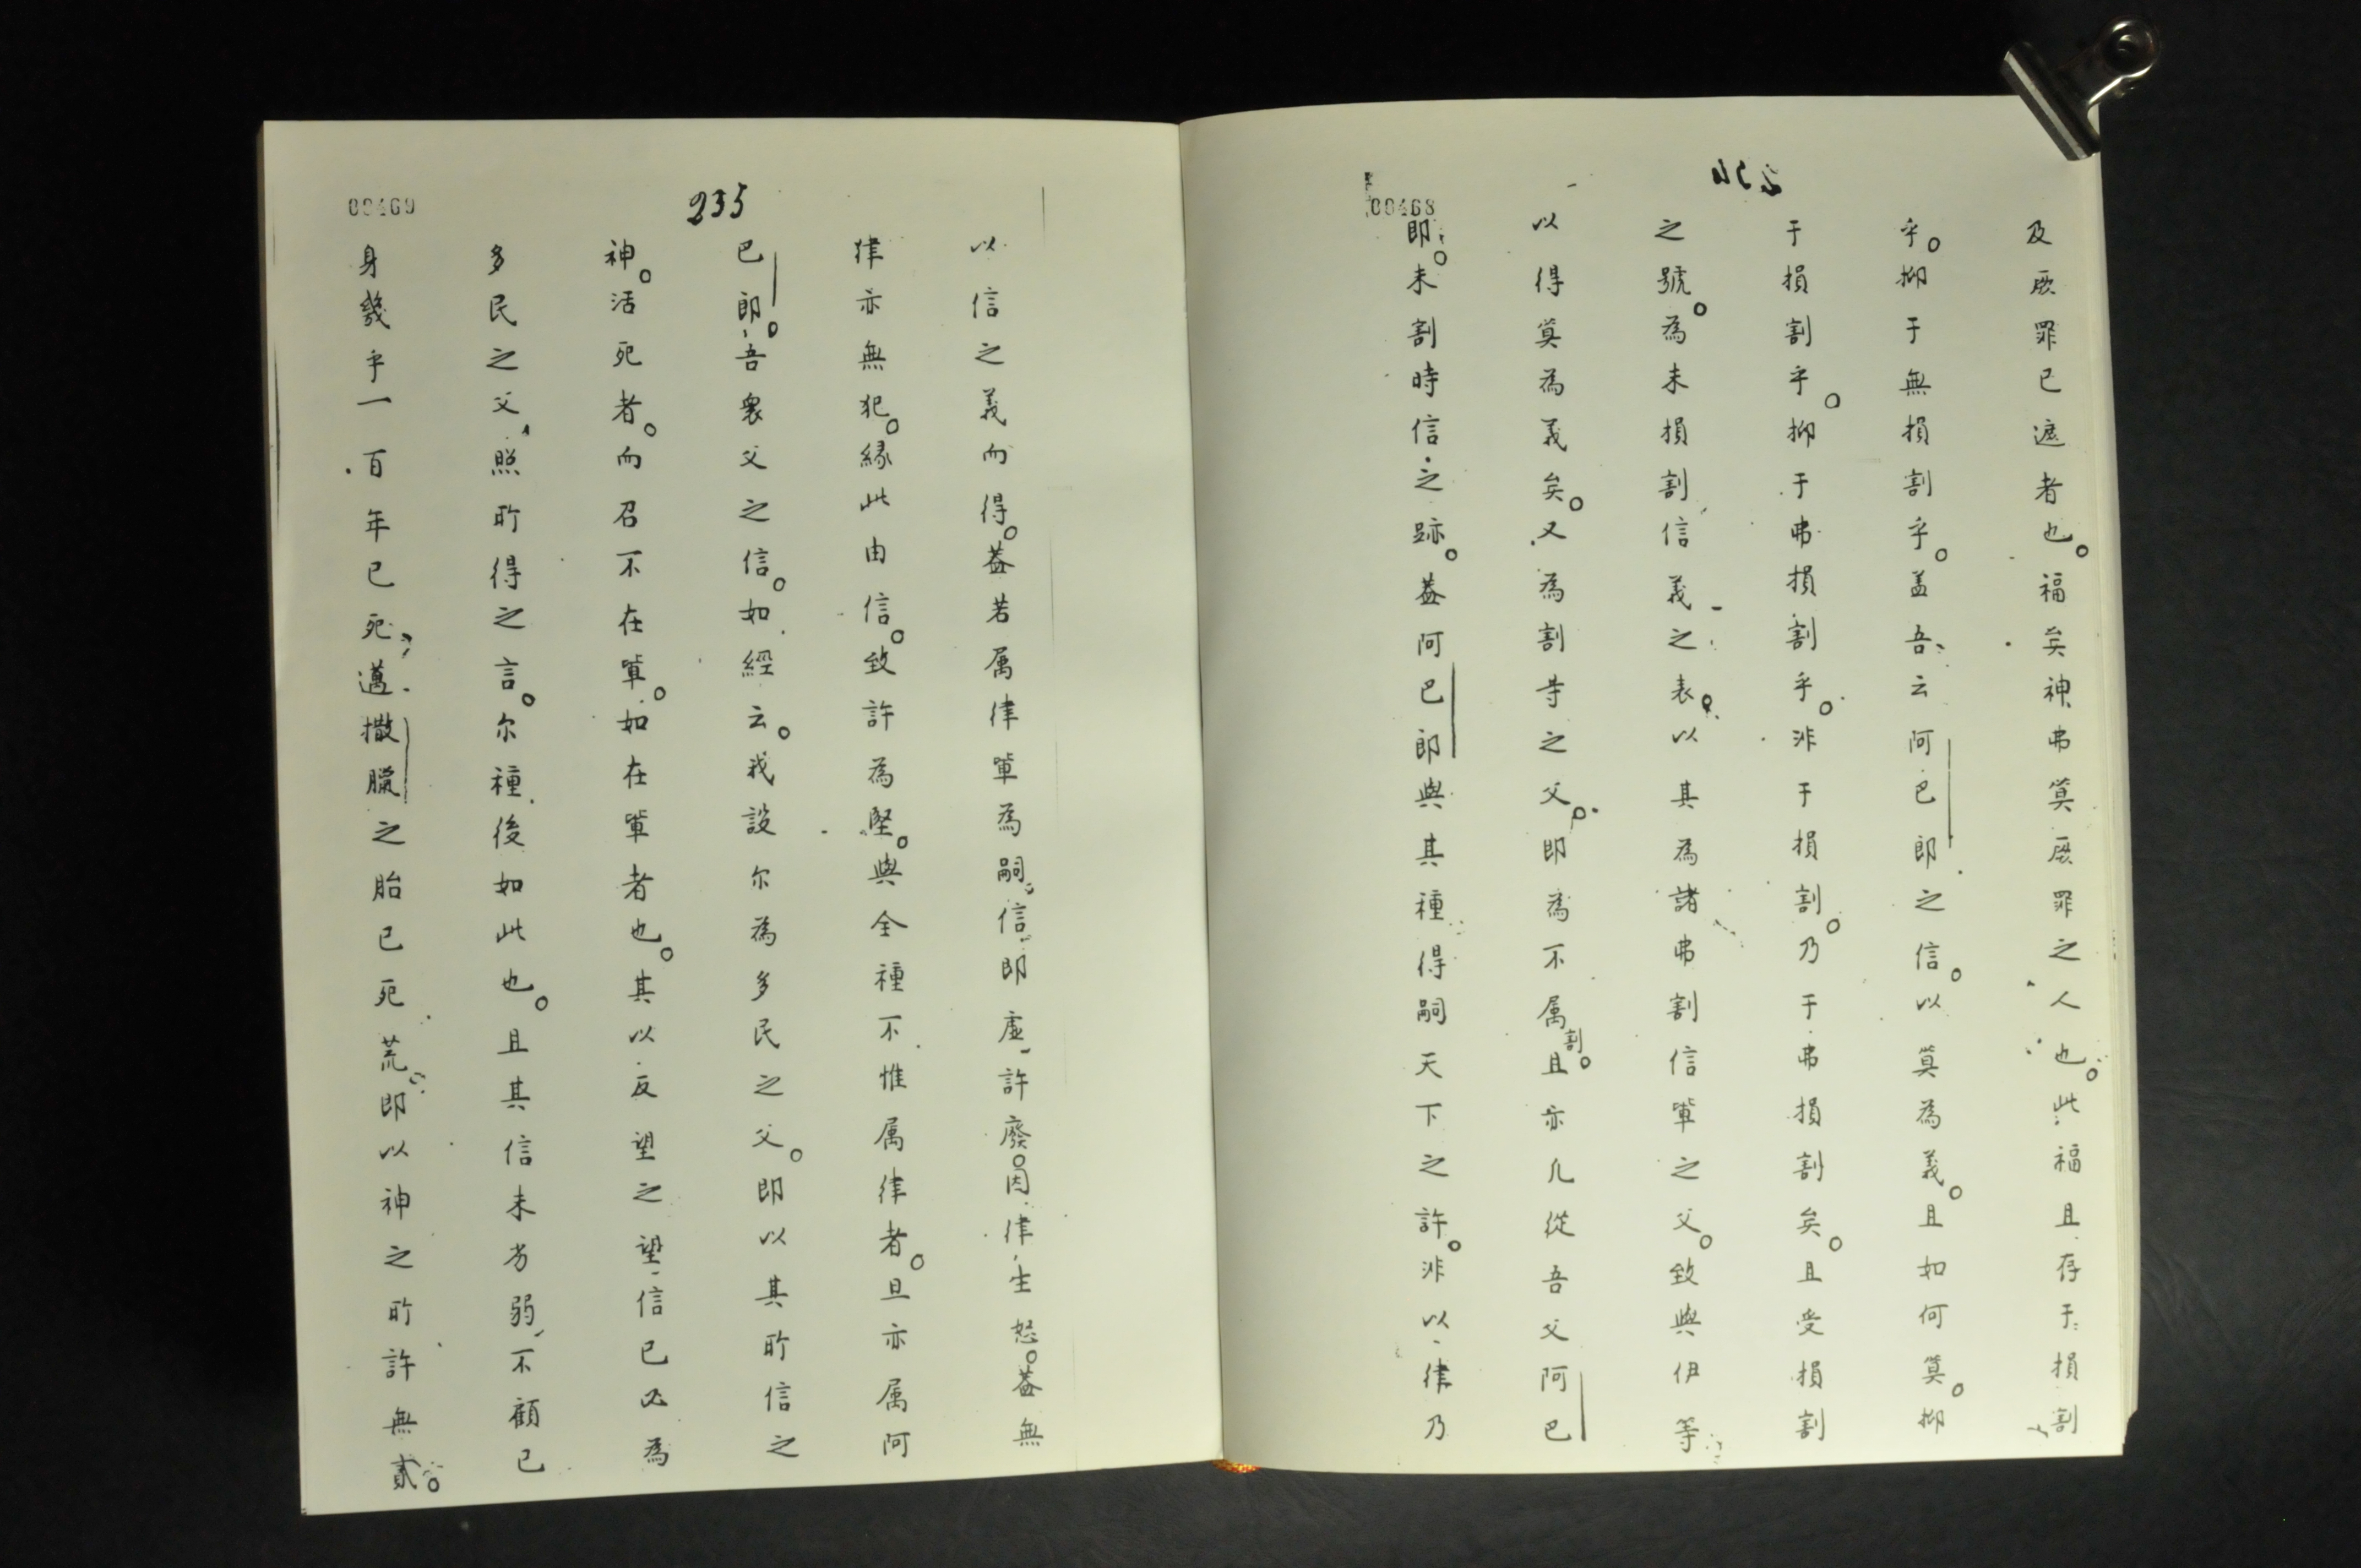 00468
及厥罪已遮者也。福矣神弗筭厥罪之人也。此福且存于損割
乎。抑于無損割乎。盖吾云阿巴郎之信。以筭為義。且如何筭。抑
于損割乎。抑于弗損割乎。非于損割。乃于弗損割矣。且受損割
之號。為未損割信義之表。以其為諸弗割信軰之父。致與伊等
以得筭為義矣。又為割等之父。即為不属割。且亦几從吾父阿巴
郎。未割時信之跡。葢阿巴郎與其種得嗣天下之許。非以律乃
235
00469
以信之義而得。葢若属律軰為嗣、信即虛、許廢。因律生怒。葢無
律亦無犯。緣此由信。致許為堅。與全種不惟属律者。旦亦属阿
巴郎。吾衆父之信。如經云。我設尔為多民之父。即以其所信之
神。活死者。而召不在軰。如在軰者也。其以反望之望、信已必為
多民之父、照所得之言。尔種後如此也。且其信未劣弱、不顧已
身幾乎一百年已死、邁撒臘之胎已死荒。即以神之所許無貳。